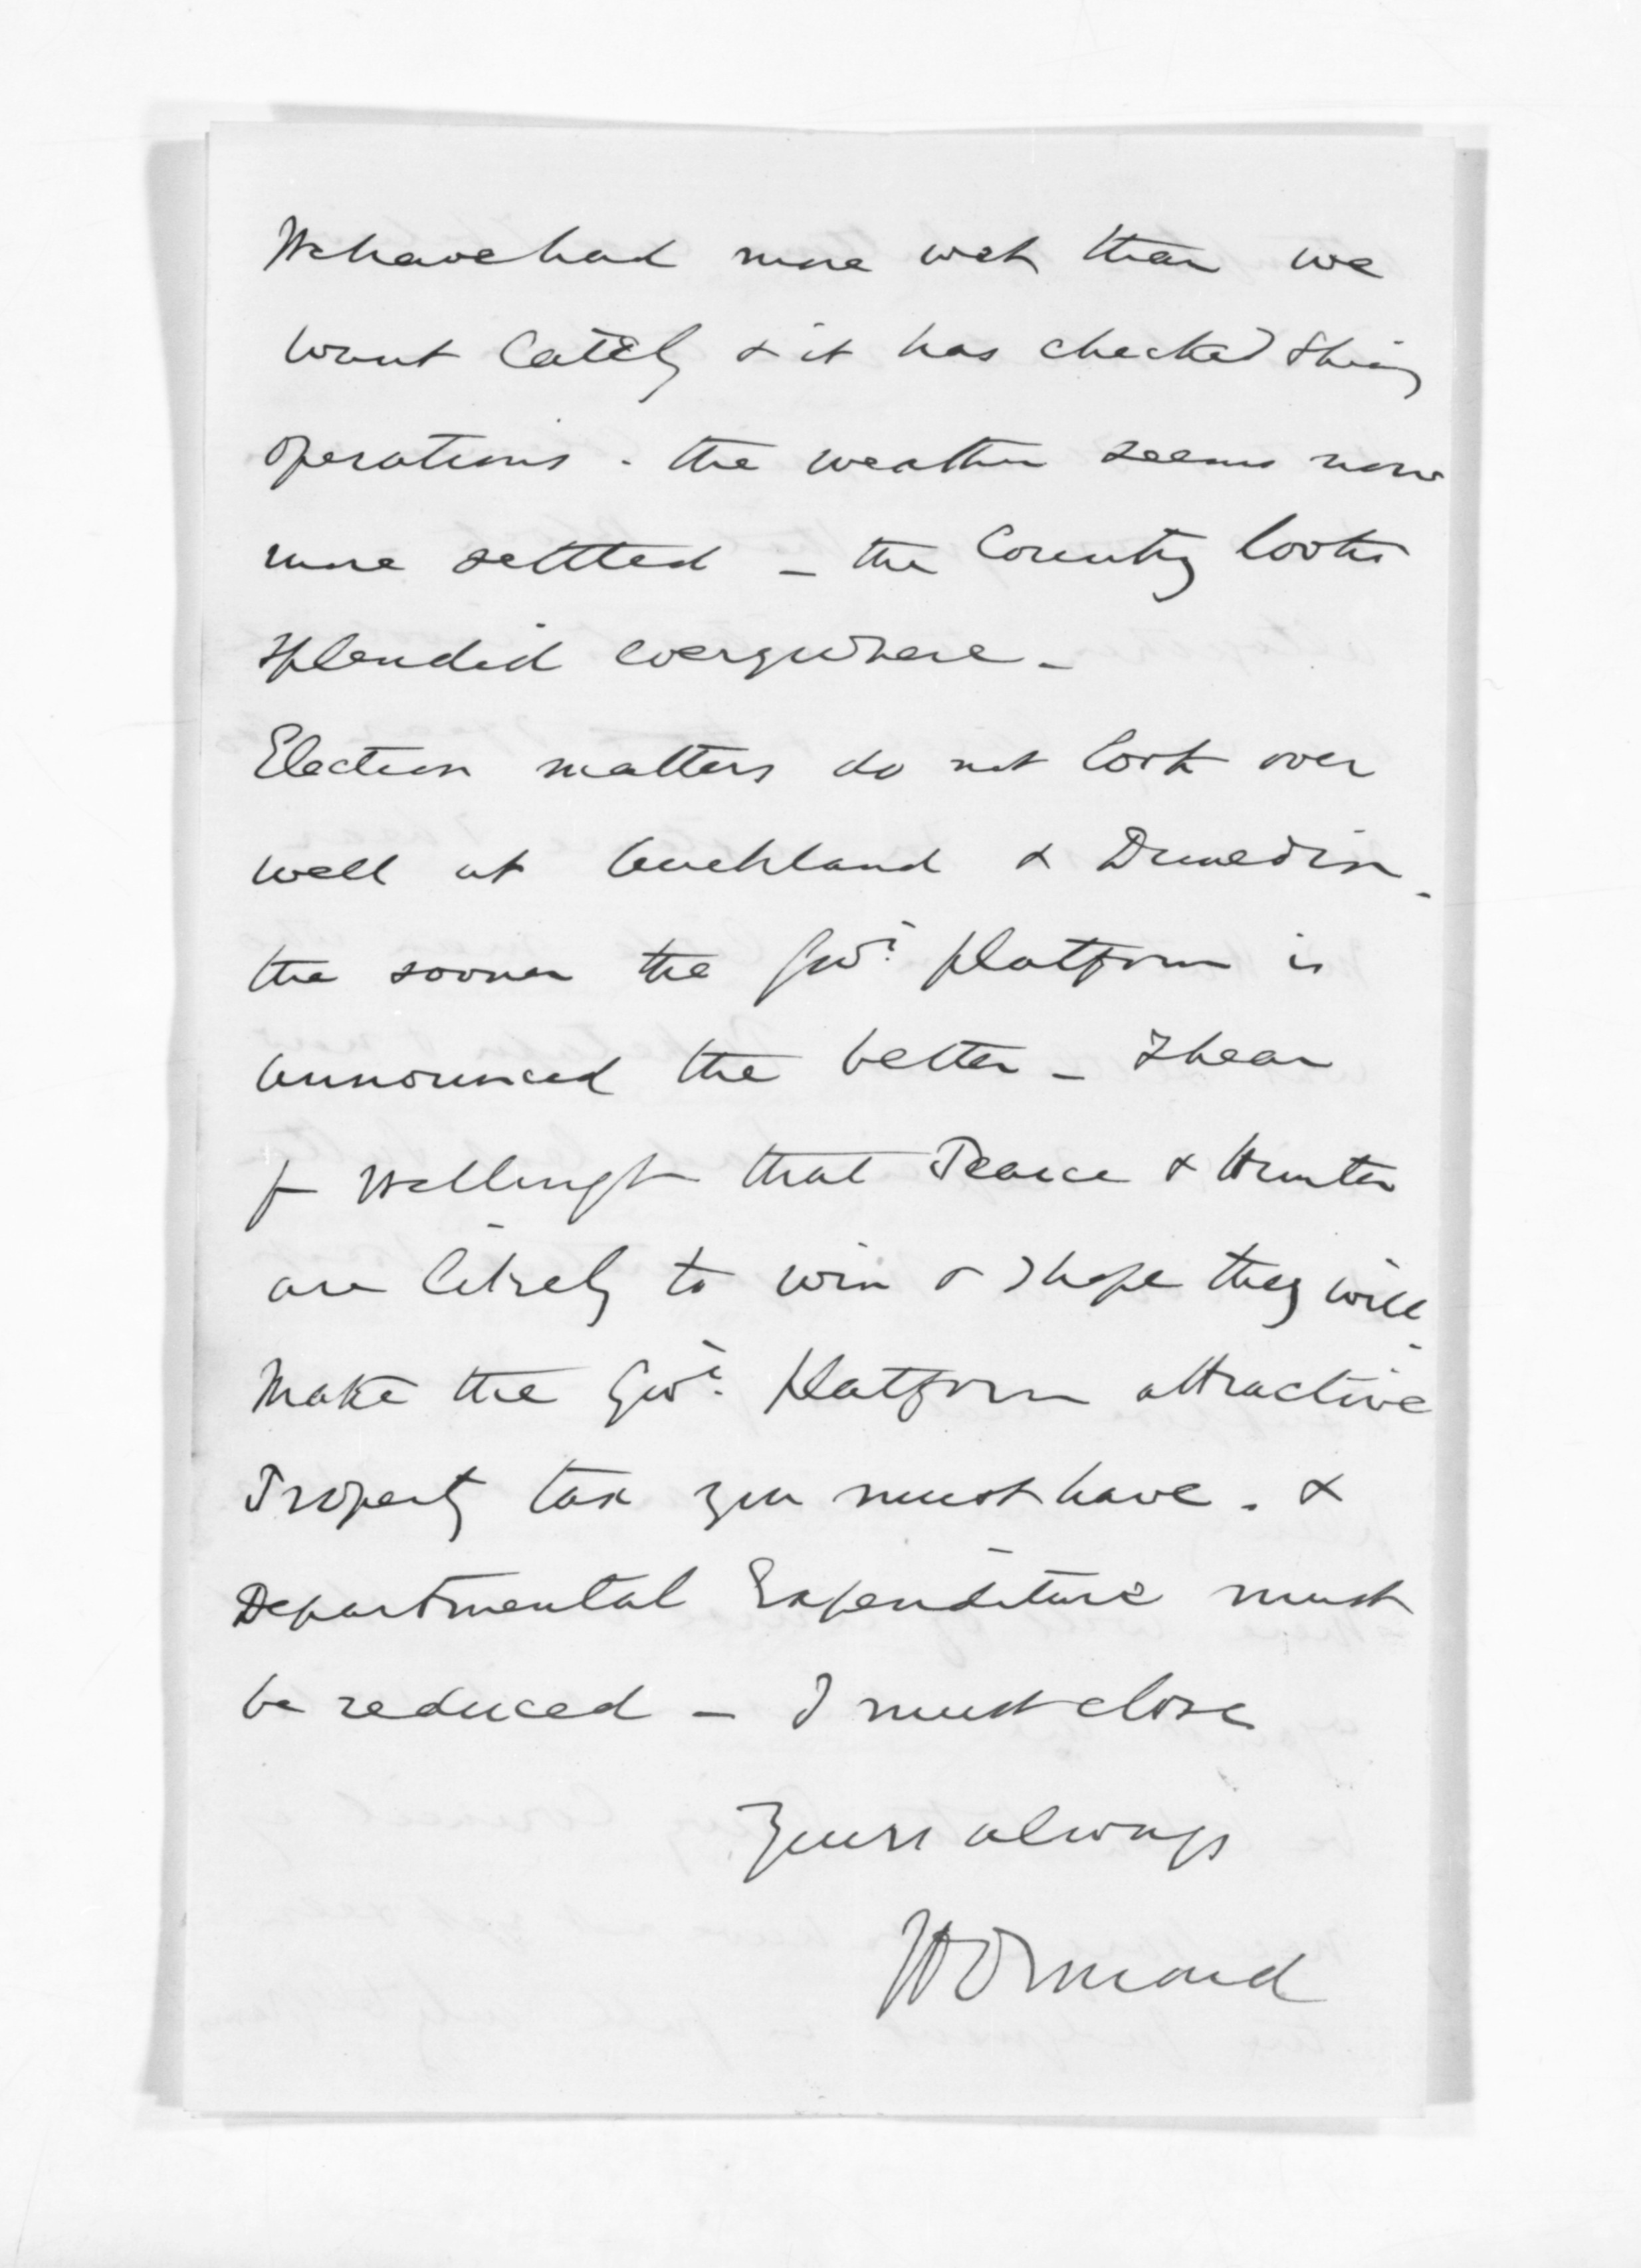 We have had more wet than we
want lately & it has checked
operations. the weather seems now
more settled – the Country looks
splendid everywhere –
Election matters do not look over
well at Auckland & Dunedin –
the sooner the Govt platform is
announced the better – I hear
fm Wellingt that Pearce & Hunter
are likely to win & I hope they will –
Make the Govt platform attractive
Property tax you must have. &
Departmental Expenditure must
be reduced – I must close
Yours always
JD Ormond